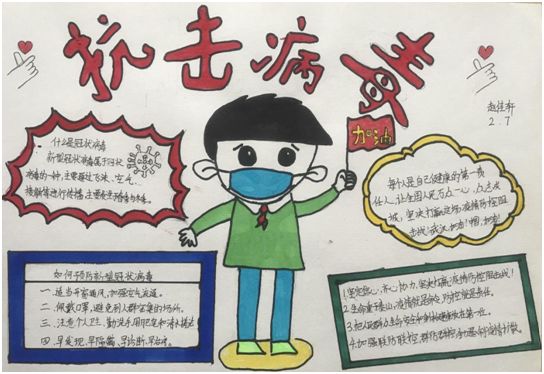 抗击病毒
赵佳轩
2.7
加油
什么是冠状病毒
新型冠状病毒属于冠状
病毒的一种,主要通过飞沫、空气、
接触等进行传播,主要
每个人是自己健康的第一责
任人,让全国人民万众一心,众志成
城,坚决打赢这场疫情防控阻
击战!武汉加油!中国加油!
如何预防新型冠状病毒
一、适当开窗通风,加强空气流通。
二、佩戴口罩,避免到人群密集的场所。
三、注意个人卫生,勤洗手用肥皂和清水搓洗
四、早发现,早隔离,早诊断,早治疗。
1.坚定信心,齐心协力,坚决打赢疫情防控阻击战!
2.生命重于泰山,疫情就是命令,防控就是责任。
3.把人民群众生命安全和身体健康放在第一位。
4.加强联防联控,群防群控